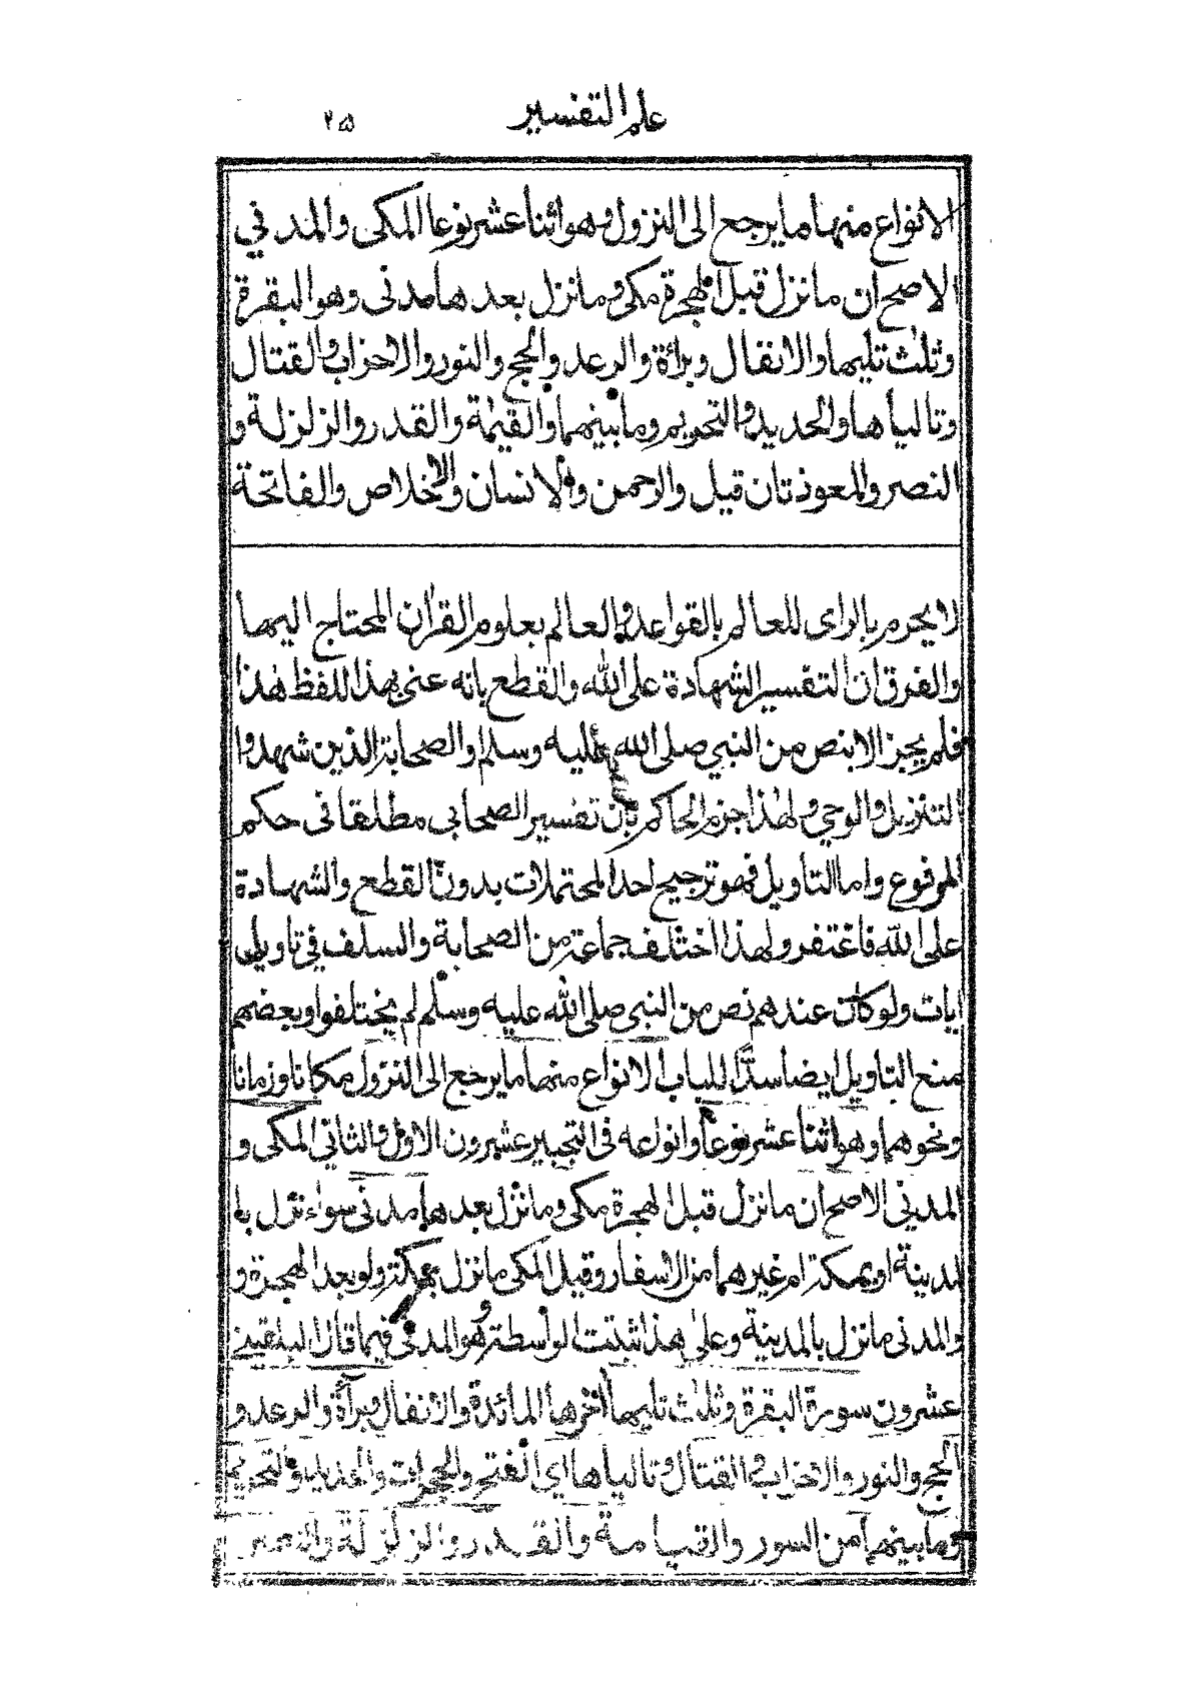 علم التفسير ٢٥
الانواع منها ما يرجع الى النزول وهو اثنا عشر نوعا المكى والمدني
الاصح ان ما نزل قبل الهجرة مكى وما نزل بعدها مدنى وهو البقرة
وثلث تليها والانفال وبراءة والرعد والحج والنور والاحزاب والقتال
وتالياها والحديد والتحريم وما بينهما والقيمة والقدر والزلزلة و
النصر والمعوذتان قيل والرحمن والانسان والاخلاص والفاتحة
لا يحرم بالراى للعالم بالقواعد والعالم بعلوم القرآن المحتاج اليها
والفرق ان التفسير الشهادة على الله والقطع بانه عنى بهذا اللفظ هذا
فلم يجز الا بنص من النبي صلى الله عليه وسلم والصحابة الذين شهدوا
التنزيل والوحي ولهذا جزم الحاكم بان تفسير الصحابى مطلقا فى حكم
المرفوع واما التاويل فهو ترجيح احد المحتملات بدون القطع والشهادة
على الله فاغتفر ولهذا اختلف جماعة من الصحابة والسلف في تاويل
ايات ولو كان عندهم نص من النبى صلى الله عليه وسلم لم يختلفوا وبعضهم
منع التاويل ايضا سدًّا للباب الانواع منها ما يرجع الى النزول مكانا وزمانا
ونحوهما وهو اثنا عشر نوعا وانواعه فى التحبير عشرون الاول والثاني المكى و
المديني الاصح ان ما نزل قبل الهجرة مكى وما نزل بعدها مدنى سواء نزل با
لمدينة او بمكة ام غيرهما من الاسفار وقيل المكى ما نزل بمكة ولو بعد الهجرة و
والمدنى ما نزل بالمدينة وعلى هذا تثبت الواسطة وهو المدنى فيما قال البلقينى
عشرون سورة البقرة وثلاث تليها آخرها المائدة والانفال وبراءة والرعد و
الحج والنور والاحزاب والقتال وتالياها اى الفتح والحجرات والحديد والتحريم
وما بينهما من السور والقيامة والقدر والزلزلة والنصر